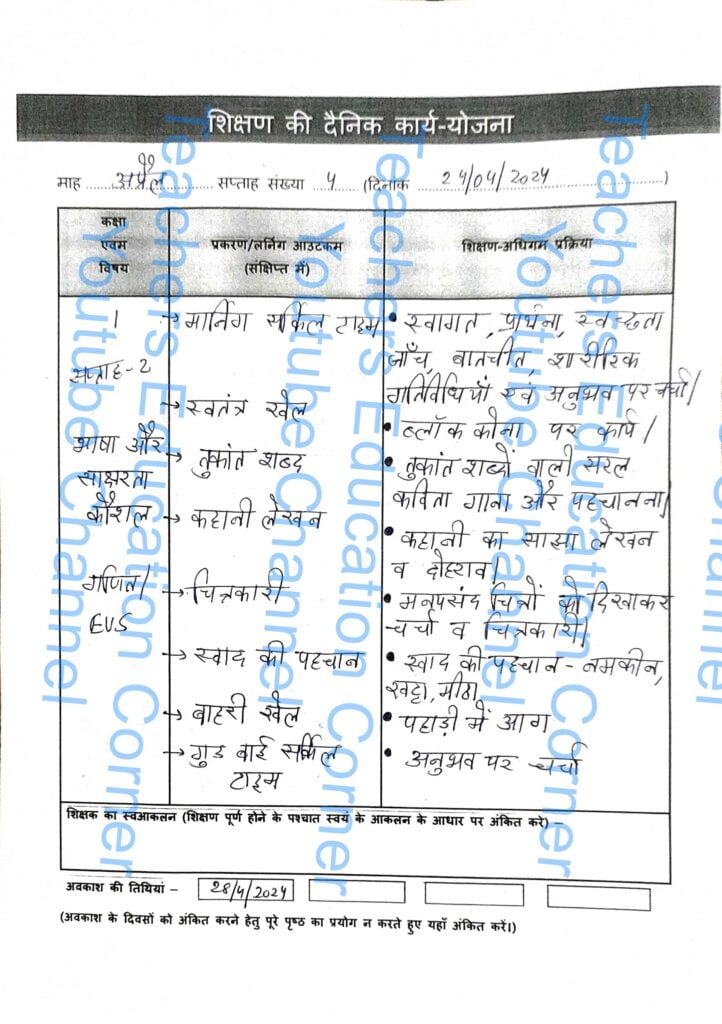 शिक्षण की दैनिक कार्य-योजना
माह अप्रैल सप्ताह संख्या 4 (दिनांक 24/04/2024)
कक्षा
एवम
विषय
प्रकरण/लर्निग आउटकम
(संक्षिप्त में)
शिक्षण-अधिगम प्रक्रिया
1
सप्ताह-2
भाषा और
साक्षरता
कौशल
गणित/
EVS
→ मार्निग सर्किल टाइम
→ स्वतंत्र खेल
→ तुकांत शब्द
→ कहानी लेखन
→ चित्रकारी
→ स्वाद की पहचान
→ बाहरी खेल
→ गुड बाई सर्किल
टाइम
• स्वागत, प्रार्थना, स्वच्छता
जाँच, बातचीत, शारीरिक
गतिविधियाँ एवं अनुभव पर चर्चा।
• ब्लॉक कोना पर कार्य।
• तुकांत शब्दों वाली सरल
कविता गाना और पहचानना।
• कहानी का साझा लेखन
व दोहराव।
• मनपसंद चित्रों को दिखाकर
चर्चा व चित्रकारी।
• स्वाद की पहचान - नमकीन,
खट्टा, मीठा
• पहाड़ी में आग
• अनुभव पर चर्चा
शिक्षक का स्वआकलन (शिक्षण पूर्ण होने के पश्चात स्वयं के आकलन के आधार पर अंकित करे) –
अवकाश की तिथियां – 28/4/2024
(अवकाश के दिवसों को अंकित करने हेतु पूरे पृष्ठ का प्रयोग न करते हुए यहाँ अंकित करें।)
Teachers Education Corner
Youtube Channel
Teachers Education Corner
Youtube Channel
Teachers Education Corner
Youtube Channel